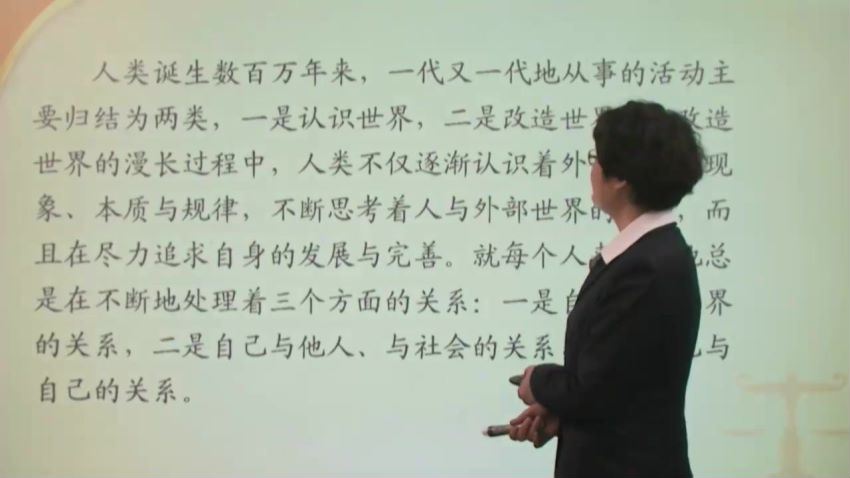 人类诞生数百万年来，一代又一代地从事的活动主
要归结为两类，一是认识世界，二是改造世 改造
世界的漫长过程中，人类不仅逐渐认识着外 现
象、本质与规律，不断思考着人与外部世界的 ，而
且在尽力追求自身的发展与完善。就每个人 总
是在不断地处理着三个方面的关系：一是自 界
的关系，二是自己与他人、与社会的关系 与
自己的关系。